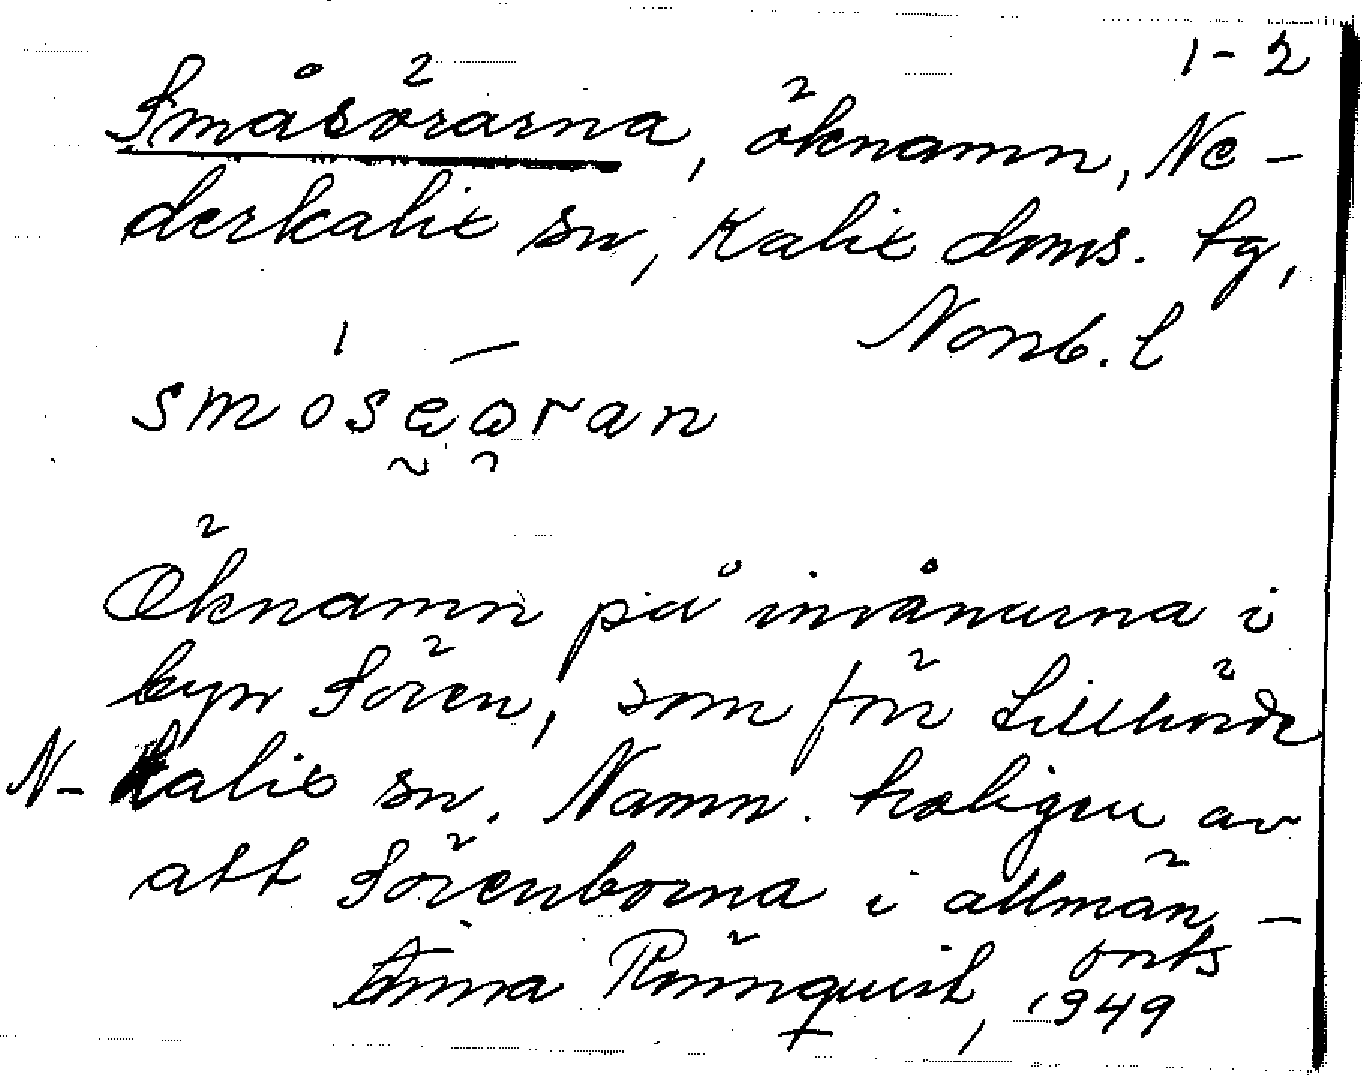 1-2
Småsörarna, öknamn, Ne-
derkalix sn, Kalix doms. tg,
Norrb. l
smóseøran
Öknamn på invånarna i
byn Sören, som förr tillhörde
N-Kalix sn. Namn. troligen av
att Sörenborna i allmän-
Anna Rönnquist, orts
1949